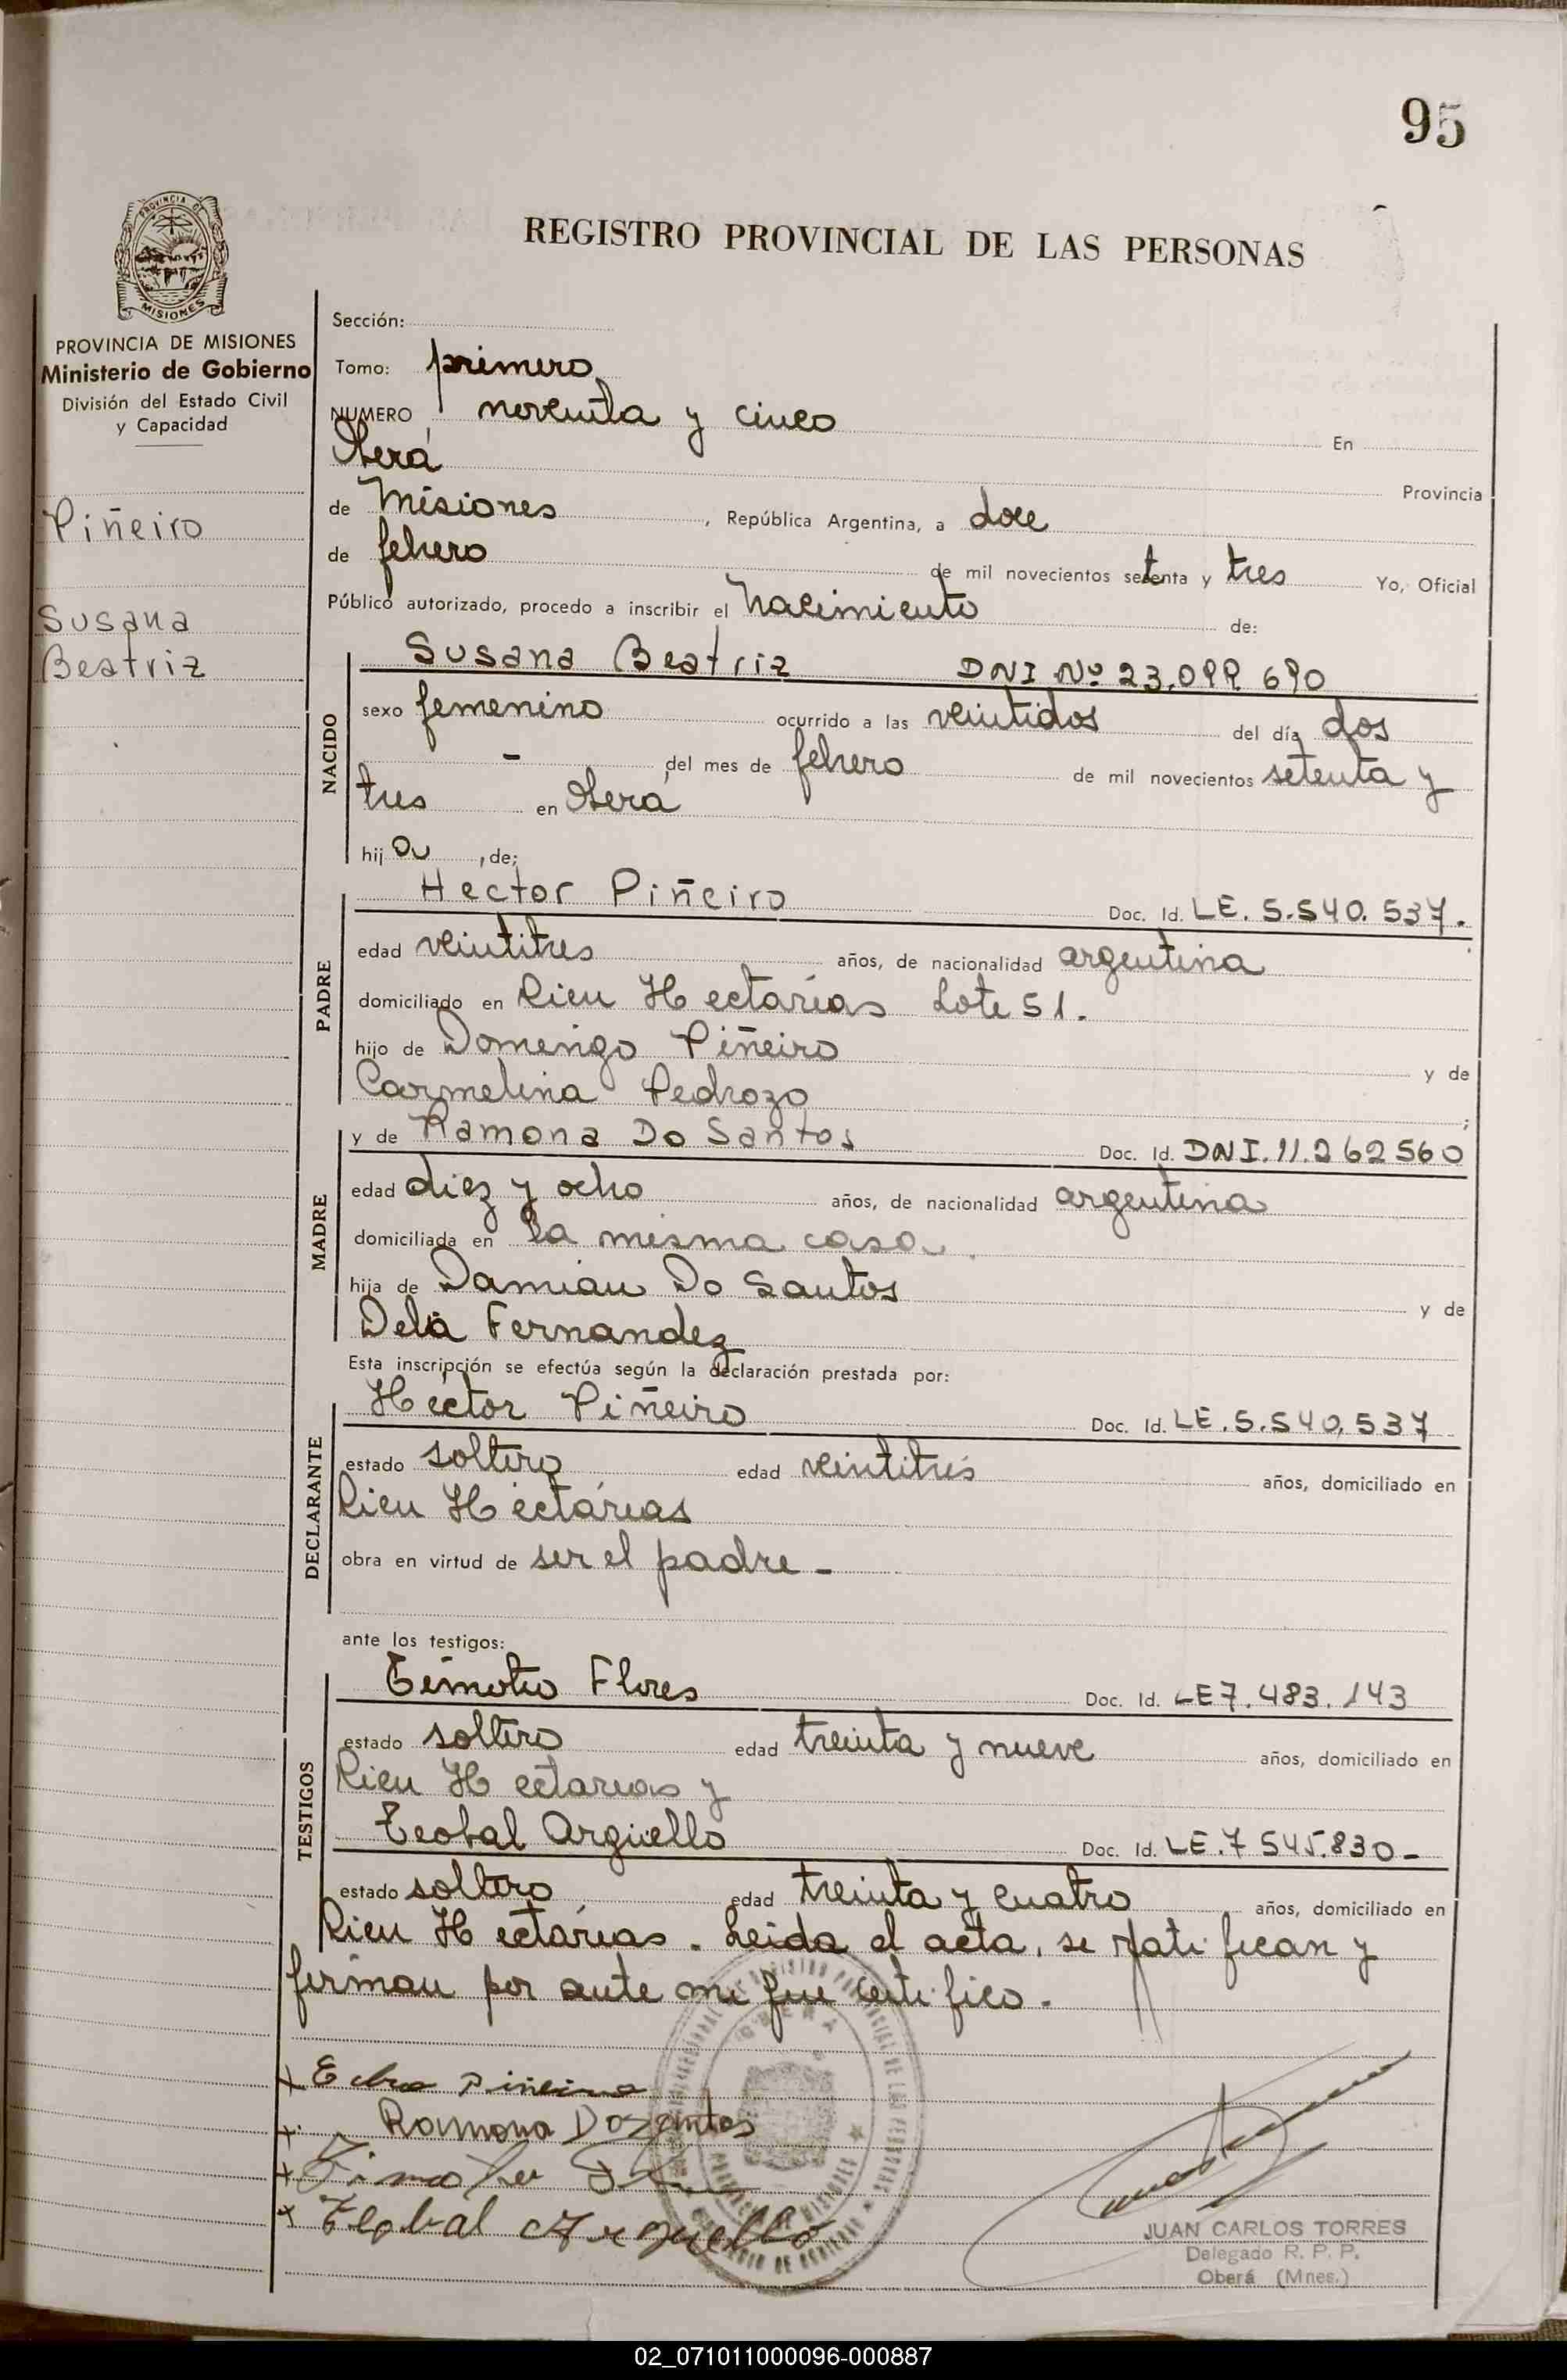 95
REGISTRO PROVINCIAL DE LAS PERSONAS
PROVINCIA DE
MISIONES
PROVINCIA DE MISIONES
Ministerio de Gobierno
División del Estado Civil
y Capacidad
Piñeiro
Susana
Beatriz
Sección:
Tomo: primero
NUMERO noventa y cinco En
Oberá Provincia
de Misiones, República Argentina, a doce
de febrero de mil novecientos setenta y tres Yo, Oficial
Público autorizado, procedo a inscribir el nacimiento de:
NACIDO
Susana Beatriz DNI Nº 23.099 690
sexo femenino ocurrido a las veintidos del día dos
- del mes de febrero de mil novecientos setenta y
tres en Oberá
hija, de:
PADRE
Héctor Piñeiro Doc. Id. LE. 5.540.537.
edad veintitres años, de nacionalidad argentina
domiciliado en Cien Hectarias Lote 51.
hijo de Domingo Piñeiro y de
Carmelina Pedrozo;
MADRE
y de Ramona Do Santos Doc. Id. DNI.11.262560
edad diez y ocho años, de nacionalidad argentina
domiciliada en la misma casa.
hija de Damian Do Santos y de
Dela Fernandez
Esta inscripción se efectúa según la declaración prestada por:
DECLARANTE
Héctor Piñeiro Doc. Id. LE.5.540.537
estado soltero edad veintitrés años, domiciliado en
Cien Hectárias
obra en virtud de ser el padre -
ante los testigos:
TESTIGOS
Timoteo Flores Doc. Id. LE 7.483.143
estado soltero edad treinta y nueve años, domiciliado en
Cien Hectareas y
Teobal Argüello Doc. Id. LE.7 545.830-
estado soltero edad treinta y cuatro años, domiciliado en
Cien Hectáreas. Leida el acta, se ratifican y
firman por ante mi que certifico.
Piñeiro
Ramona Dozantos
Timoteo
Teobal Arguello
OBERA
JUAN CARLOS TORRES
Delegado R. P. P.
Oberá (Mnes.)
02_071011000096-000887